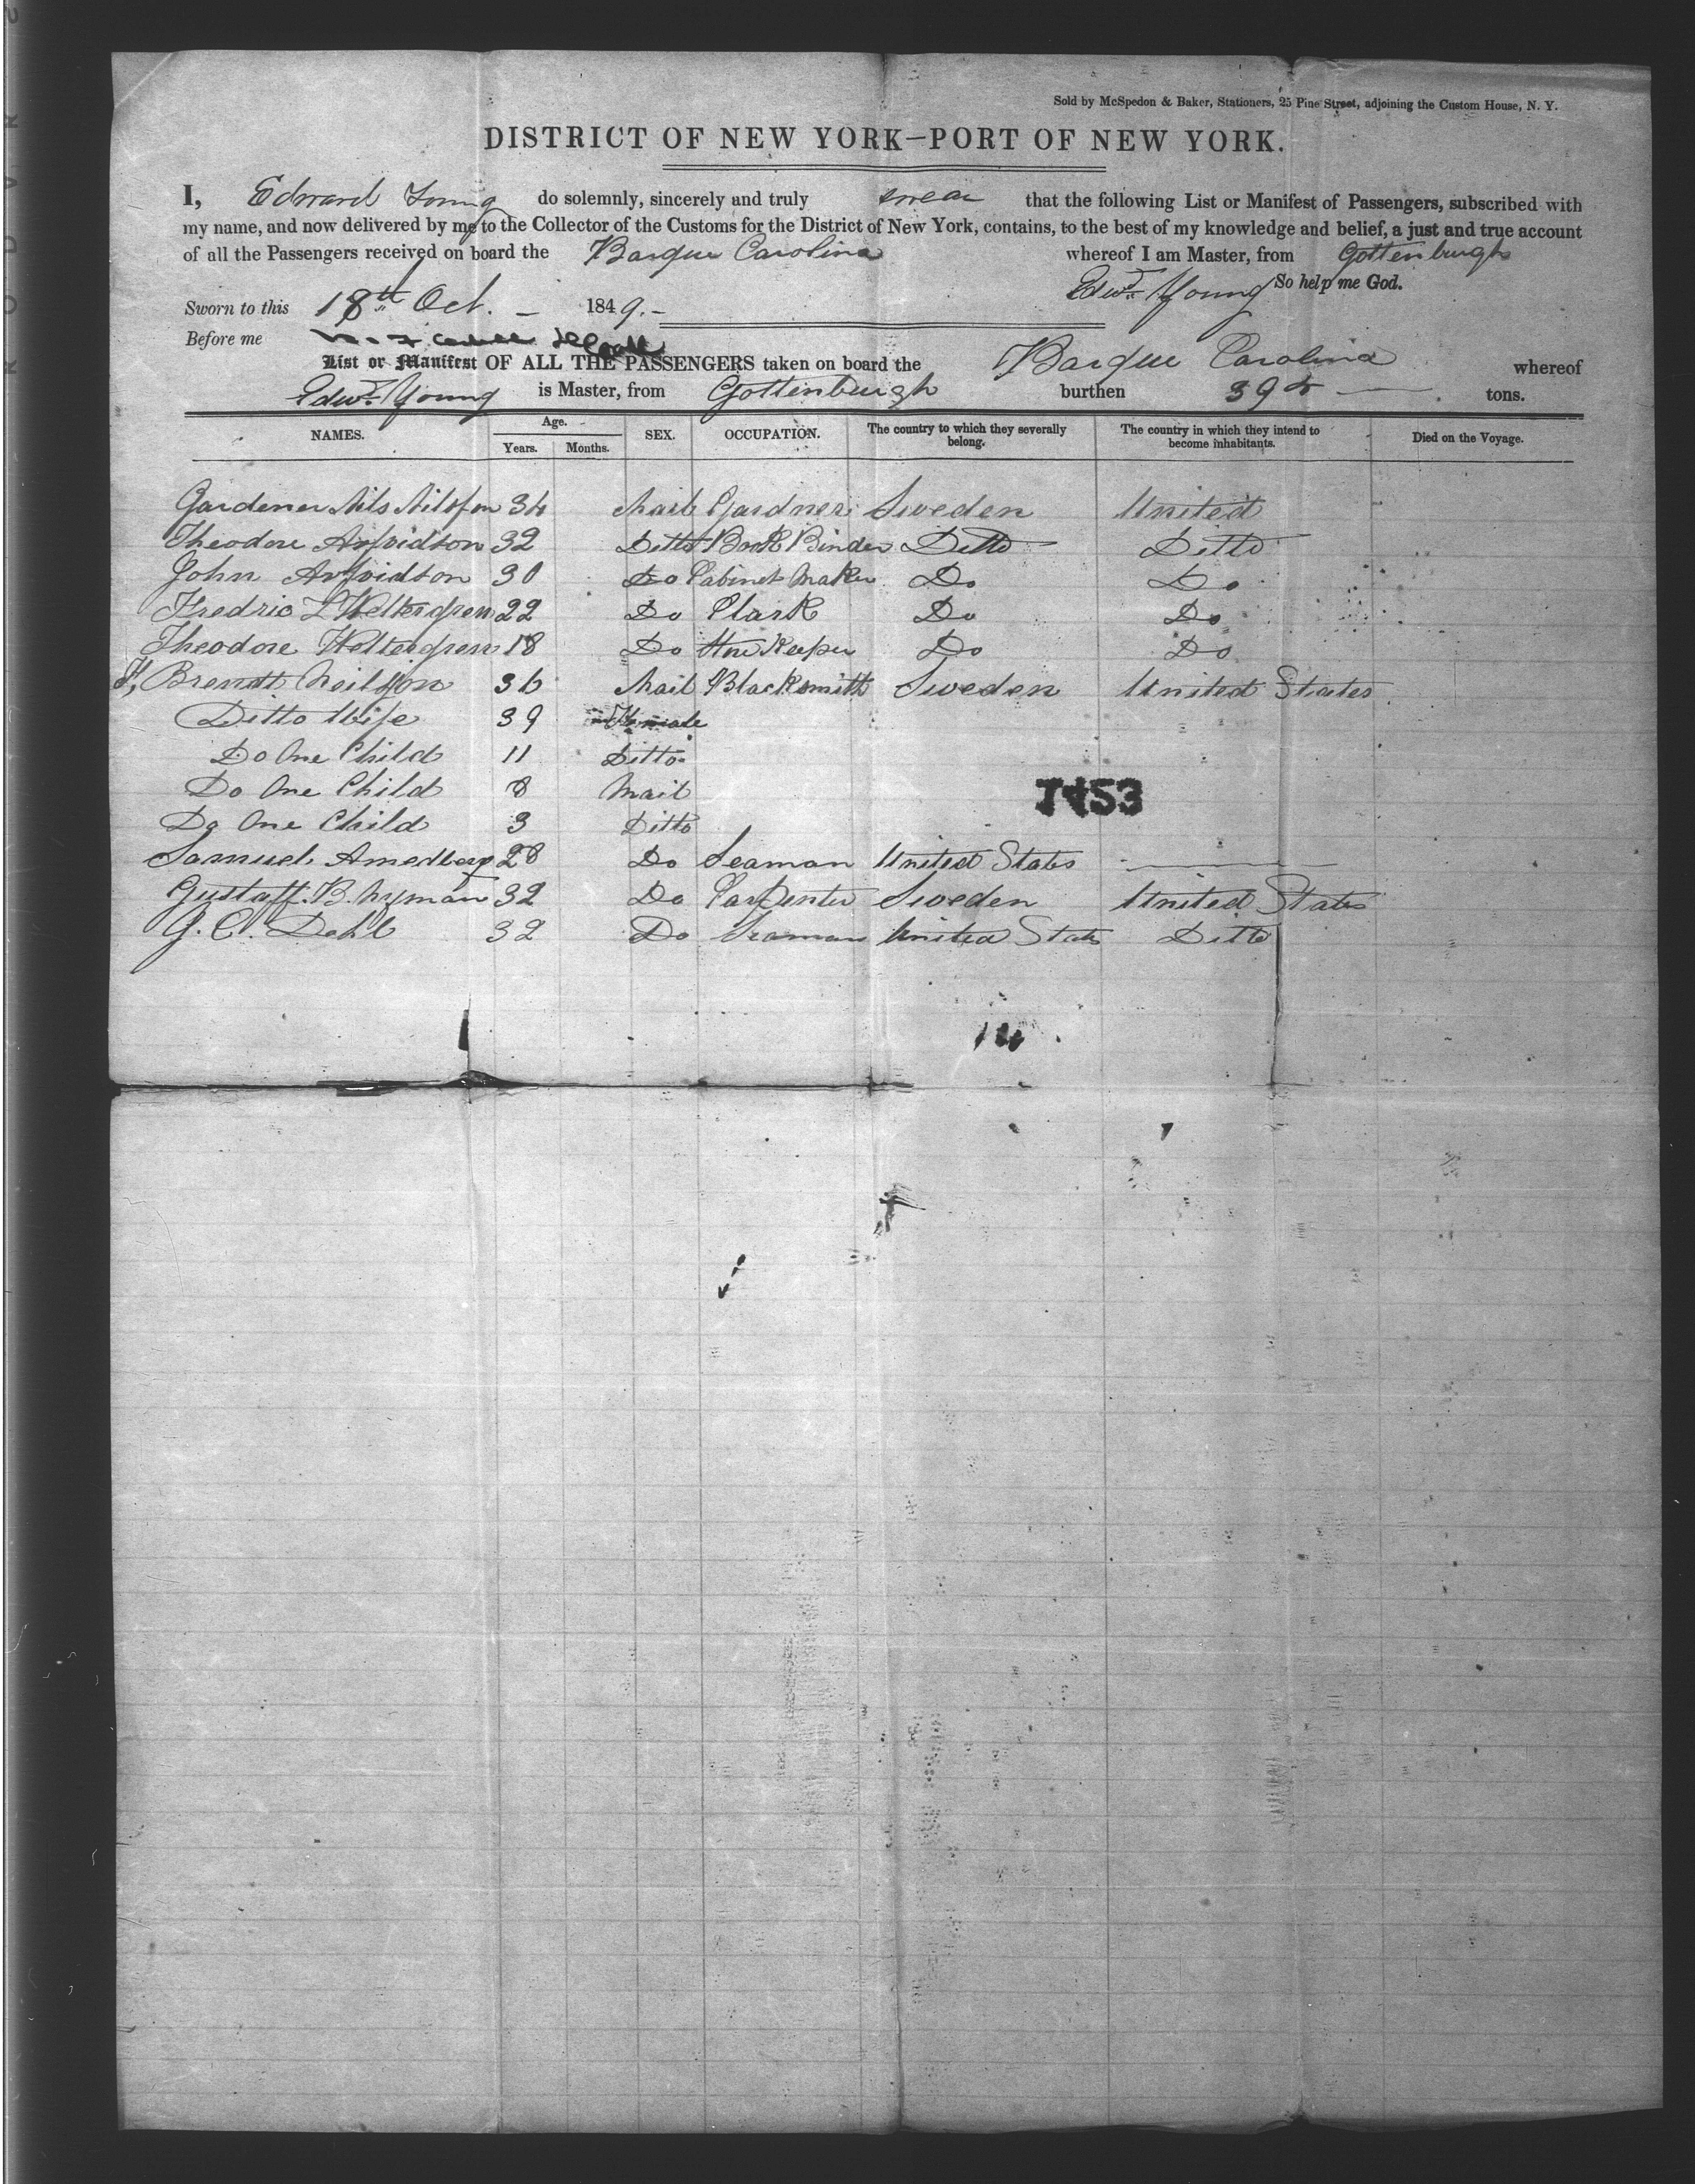 Sold by McSpedon & Baker, Stationers, 25 Pine Street, adjoining the Custom House, N. Y.
DISTRICT OF NEW YORK—PORT OF NEW YORK.
I, Edward Young do solemnly, sincerely and truly swear that the following List or Manifest of Passengers, subscribed with
my name, and now delivered by me to the Collector of the Customs for the District of New York, contains, to the best of my knowledge and belief, a just and true account
of all the Passengers received on board the Barque Carolina whereof I am Master, from Gottenburgh
Edwd. Young So help me God.
Sworn to this 18th Oct. 1849.
Before me
List or Manifest OF ALL THE PASSENGERS taken on board the Barque Carolina whereof
Edwd. Young is Master, from Gottenburgh burthen tons.
NAMES. Age. Years. Months. SEX. OCCUPATION. The country to which they severally belong. The country in which they intend to become inhabitants. Died on the Voyage.
Gardener Nils Nilsson 34 Mail Gardner Sweden United
Theodore Arfvidson 32 Ditto Book Binder Ditto Ditto
John Arfvidson 30 Do Cabinet Maker Do Do
Fredric L Weltergren 22 Do Clark Do Do
Theodore Weltergren 18 Do Keeper Do Do
Neilsson 36 Mail Blacksmith Sweden United States
Ditto Wife 39 Female
Do One Child 11 Ditto
Do One Child 8 Mail
Do One Child 3 Ditto
7453
Samuel 28 Do Seaman United States
Gustaff. B. Nyman 32 Do Carpenter Sweden United States
G. C. Dahl 32 Do Seaman United States Ditto